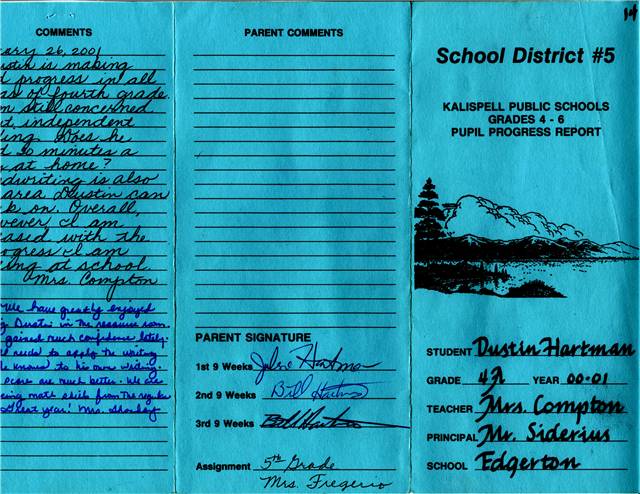 COMMENTS
ary 26, 2001
ustin is making
d progress in all
as of fourth grade.
m still concerned
t independent
ing. Does he
d 20 minutes a
at home?
dwriting is also
area Dustin can
k on. Overall,
wever I am
ased with the
ogress I am
ing at school.
Mrs. Compton
We have greatly enjoyed
g Dustin in the resource room.
gained much confidence lately.
needs to apply the writing
knows to his own writing.
are much better. We are
ing math skills from the regular
Great year! Mrs.
PARENT COMMENTS
PARENT SIGNATURE
1st 9 Weeks Julie Hartman
2nd 9 Weeks Bill Hartman
3rd 9 Weeks Bill Hartman
Assignment 5th Grade
Mrs. Fregerio
14
School District #5
KALISPELL PUBLIC SCHOOLS
GRADES 4 - 6
PUPIL PROGRESS REPORT
STUDENT Dustin Hartman
GRADE 4 YEAR 00-01
TEACHER Mrs. Compton
PRINCIPAL Mr. Siderius
SCHOOL Edgerton